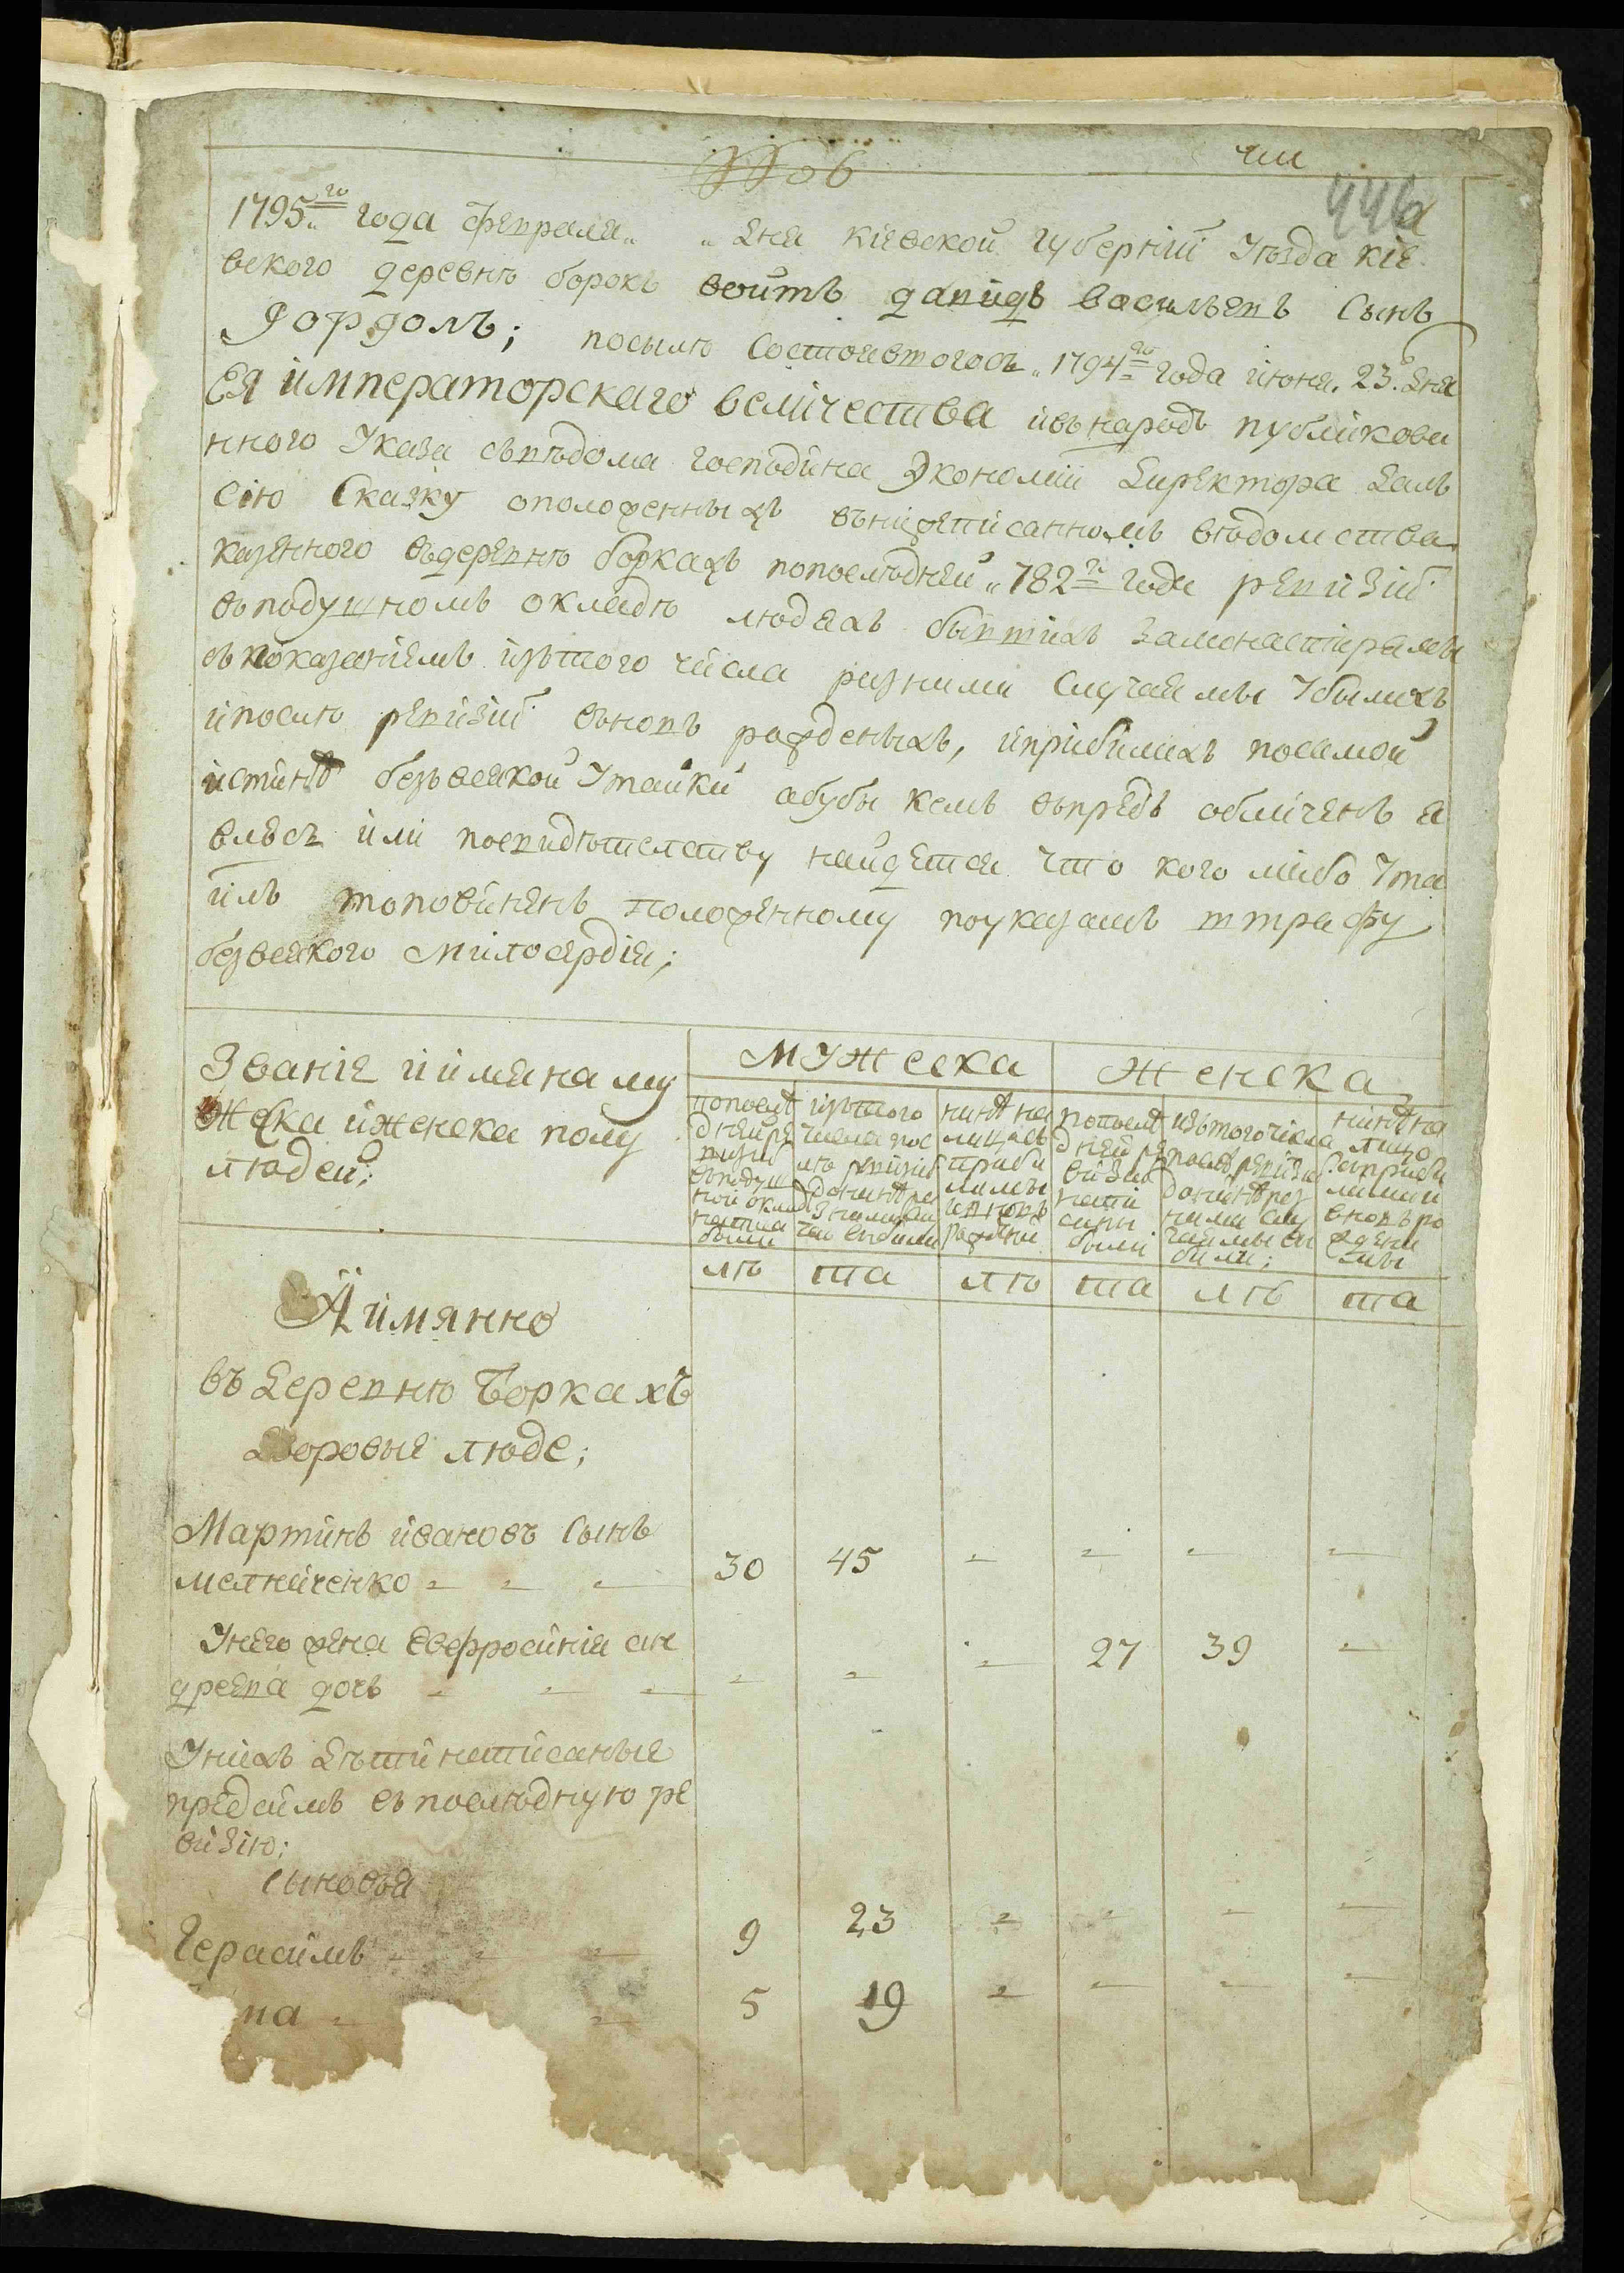 446
1795го года февраля „ „ дня кіевской губерніи уѣзда кіе
вского деревнѣ борокъ войтъ давидъ васильевъ сынъ
по силѣ состоявшогось „ 1794го года июня 23го дня
Ея императорскаго величества и въ народъ публикова
нного указа съ вѣдома господина экономіи директора далъ
сію сказку о положенныхъ въ нижеписанномъ вѣдомства
казенного въ деревнѣ боркахъ по последней „ 782го года ревизіи
въ подушномъ окладѣ людяхъ бывшихъ за монастирями
съ показаніемъ изъ того числа разними случаями убылихъ
и послѣ ревизіи вновъ рожденыхъ, и прибилихъ по самой
истинѣ безъ всякой утайки а буде кемъ въпредъ обличенъ я
влюсъ или по свидѣтелству найдется что кого либо ута
илъ то повиненъ положенному по указамъ штрафу
без всякого милосердія;
Званіе и имяна му
жеска и женска полу
людей;
Мужеска
Женска
по послѣ
дней ре
визіи
въ подуш
ной окладѣ
написа
были
изъ того
числа пос
лѣ ревизіи
до нинѣ ра
зними слу
чаи вибили
нинѣ на
лицо съ
приби
лими
и вновъ
рожденіи
по послѣ
дней ре
визіи
напи
сани
были
изъ того числа
послѣ ревизіи
до нинѣ раз
ними слу
чаями ви
били;
нинѣ на
лицо
съ приби
лими и
вновъ ро
ждени
ми
лѣ та лѣ та лѣ та
А имянно
въ деревнѣ Боркахъ
дворовые люде;
Мартинъ ивановъ сынъ
мелниченко - - - 30 45 - - - -
У него жена Евфросинія ан
дреева дочь - - - - - - 27 39 -
У нихъ дѣти написаные
предсимъ въ последную ре
визію;
сыновья
Герасимъ - - - 9 23 - - - -
- - 5 19 - - - -